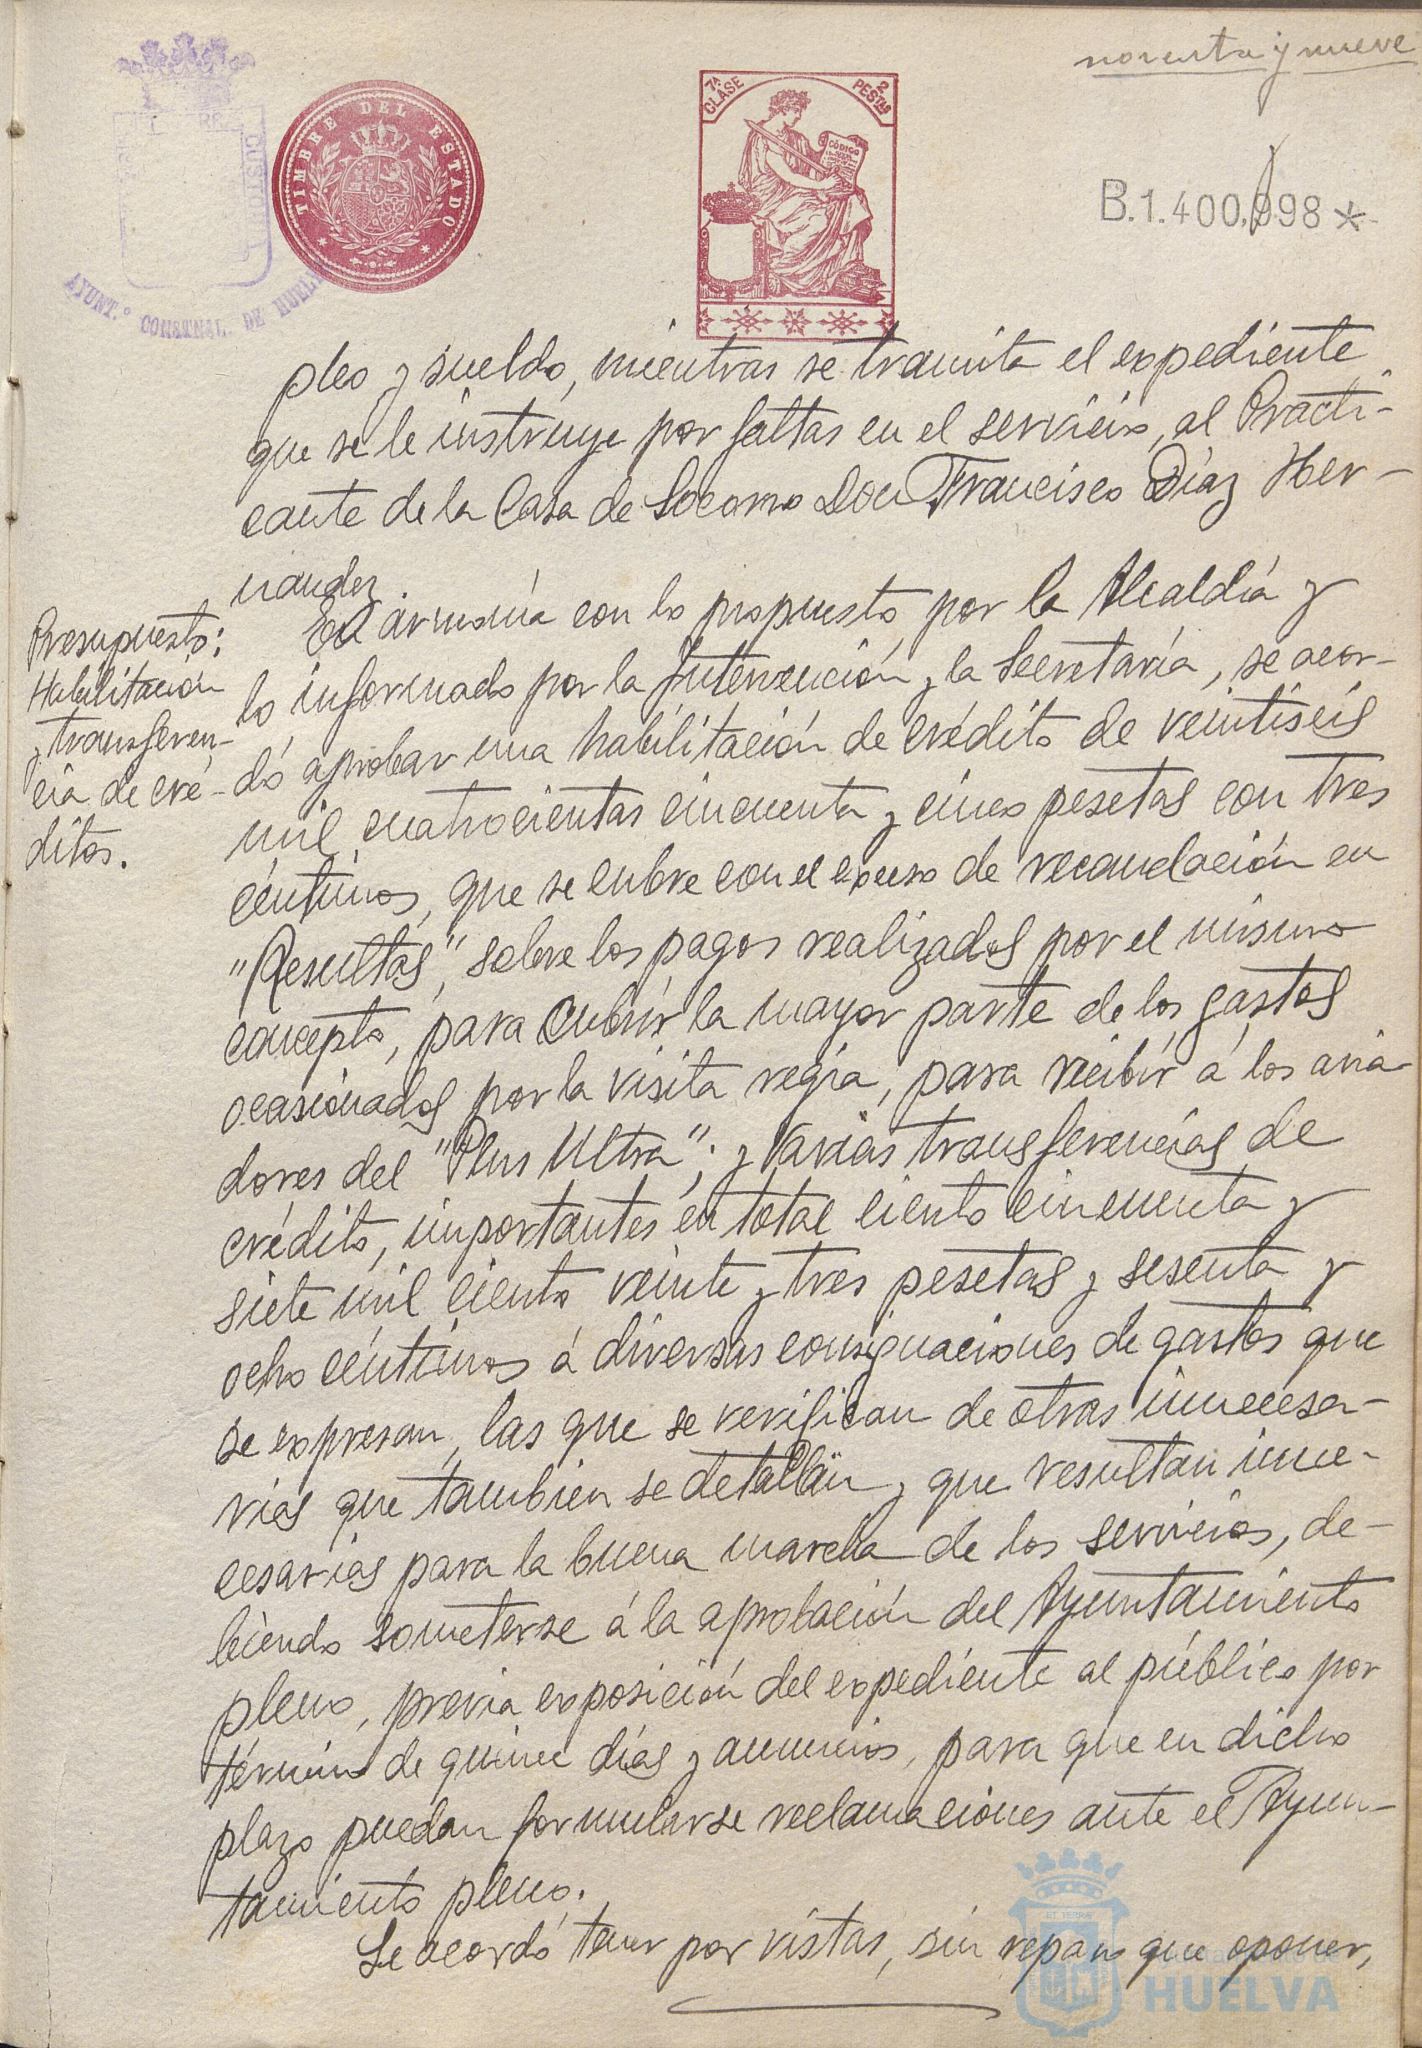 noventa y nueve
TIMBRE DEL ESTADO
7ª CLASE
2 PESTAS
CÓDIGO
B.1.400.998*
AYUNT.º CONSTNAL. DE HUELVA
pleo y sueldo, mientras se tramita el expediente
que se le instruye por faltas en el servicio, al Practi-
cante de la Casa de Socorro Don Francisco Díaz Her-
nandez.
Presupuesto:
Habilitación
y transferen-
cia de cré-
ditos.
En armonía con lo propuesto por la Alcaldía y
lo informado por la Intervención y la Secretaría, se acor-
dó aprobar una habilitación de crédito de veintiseis
mil cuatrocientas cincuenta y cinco pesetas con tres
céntimos, que se cubre con el exceso de recaudación en
"Resultas", sobre los pagos realizados por el mismo
concepto, para cubrir la mayor parte de los gastos
ocasionados por la visita regia, para recibir á los avia-
dores del "Plus Ultra"; y varias transferencias de
crédito, importantes en total ciento cincuenta y
siete mil ciento veinte y tres pesetas y sesenta y
ocho céntimos á diversas consignaciones de gastos que
se expresan, las que se verifican de otras innecesa-
rias que también se detallan y que resultan inne-
cesarias para la buena marcha de los servicios, de-
biendo someterse á la aprobación del Ayuntamiento
pleno, previa exposición del expediente al público por
término de quince días y anuncios, para que en dicho
plazo puedan formularse reclamaciones ante el Ayun-
tamiento pleno.
Se acordó tener por vistas, sin reparo que oponer,
HUELVA